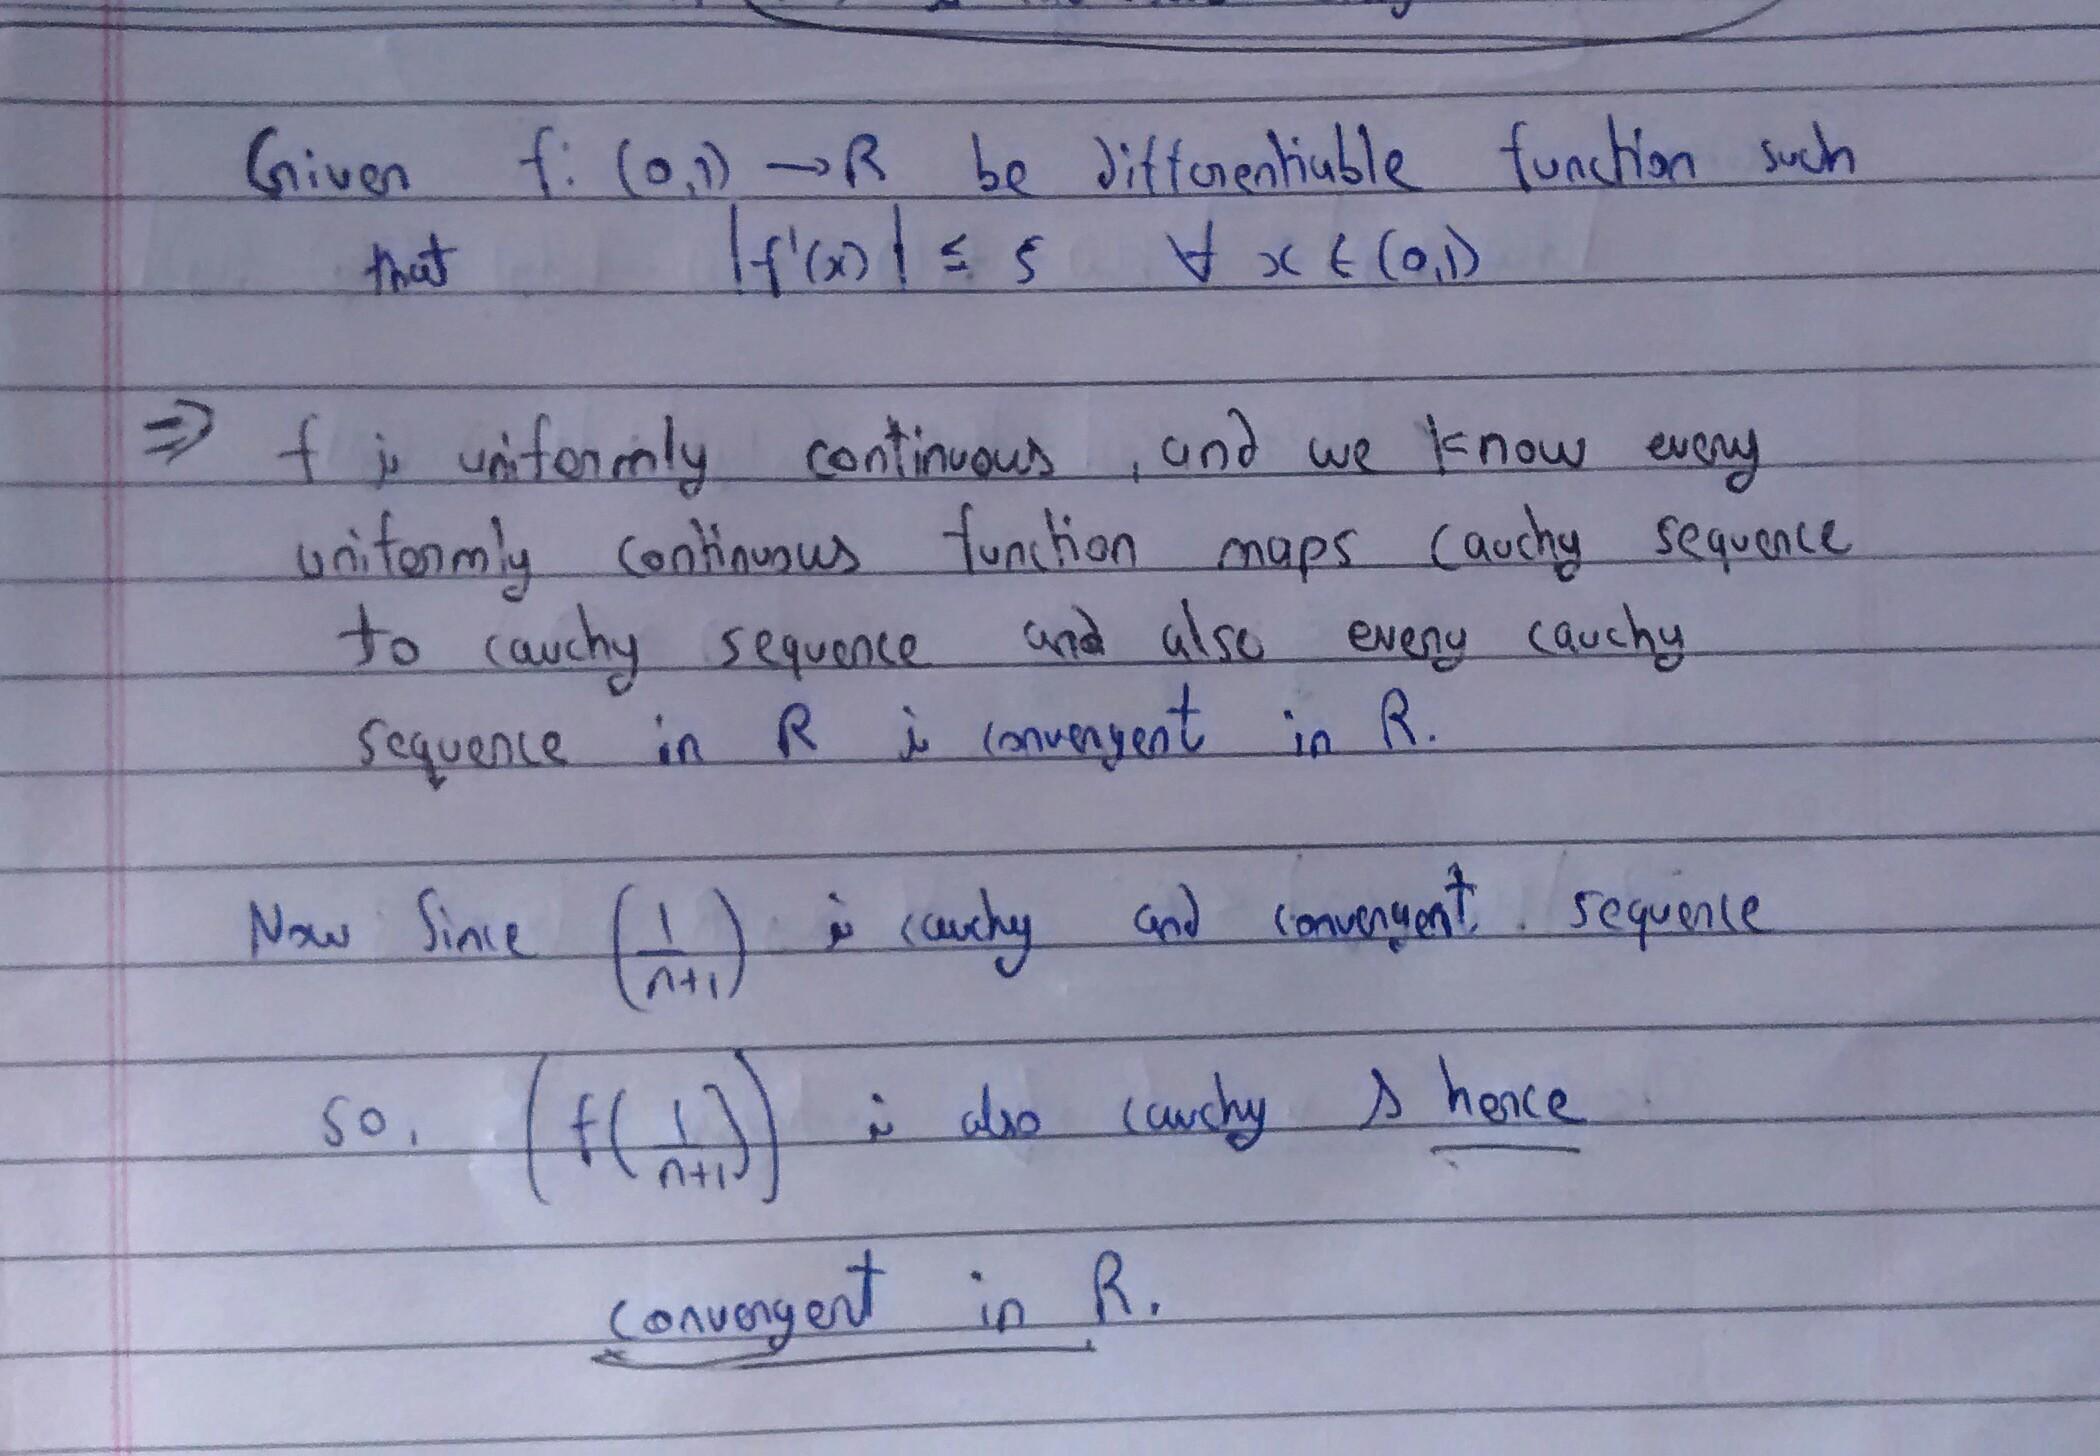 Given f: (0,1) → R be differentiable function such
that |f'(x)| ≤ 5 ∀ x ∈ (0,1)
⇒ f is uniformly continuous, and we know every
uniformly continuous function maps cauchy sequence
to cauchy sequence and also every cauchy
sequence in R is convergent in R.
Now Since (1/(n+1)) is cauchy and convergent sequence
So, (f(1/(n+1))) is also cauchy & hence
convergent in R.